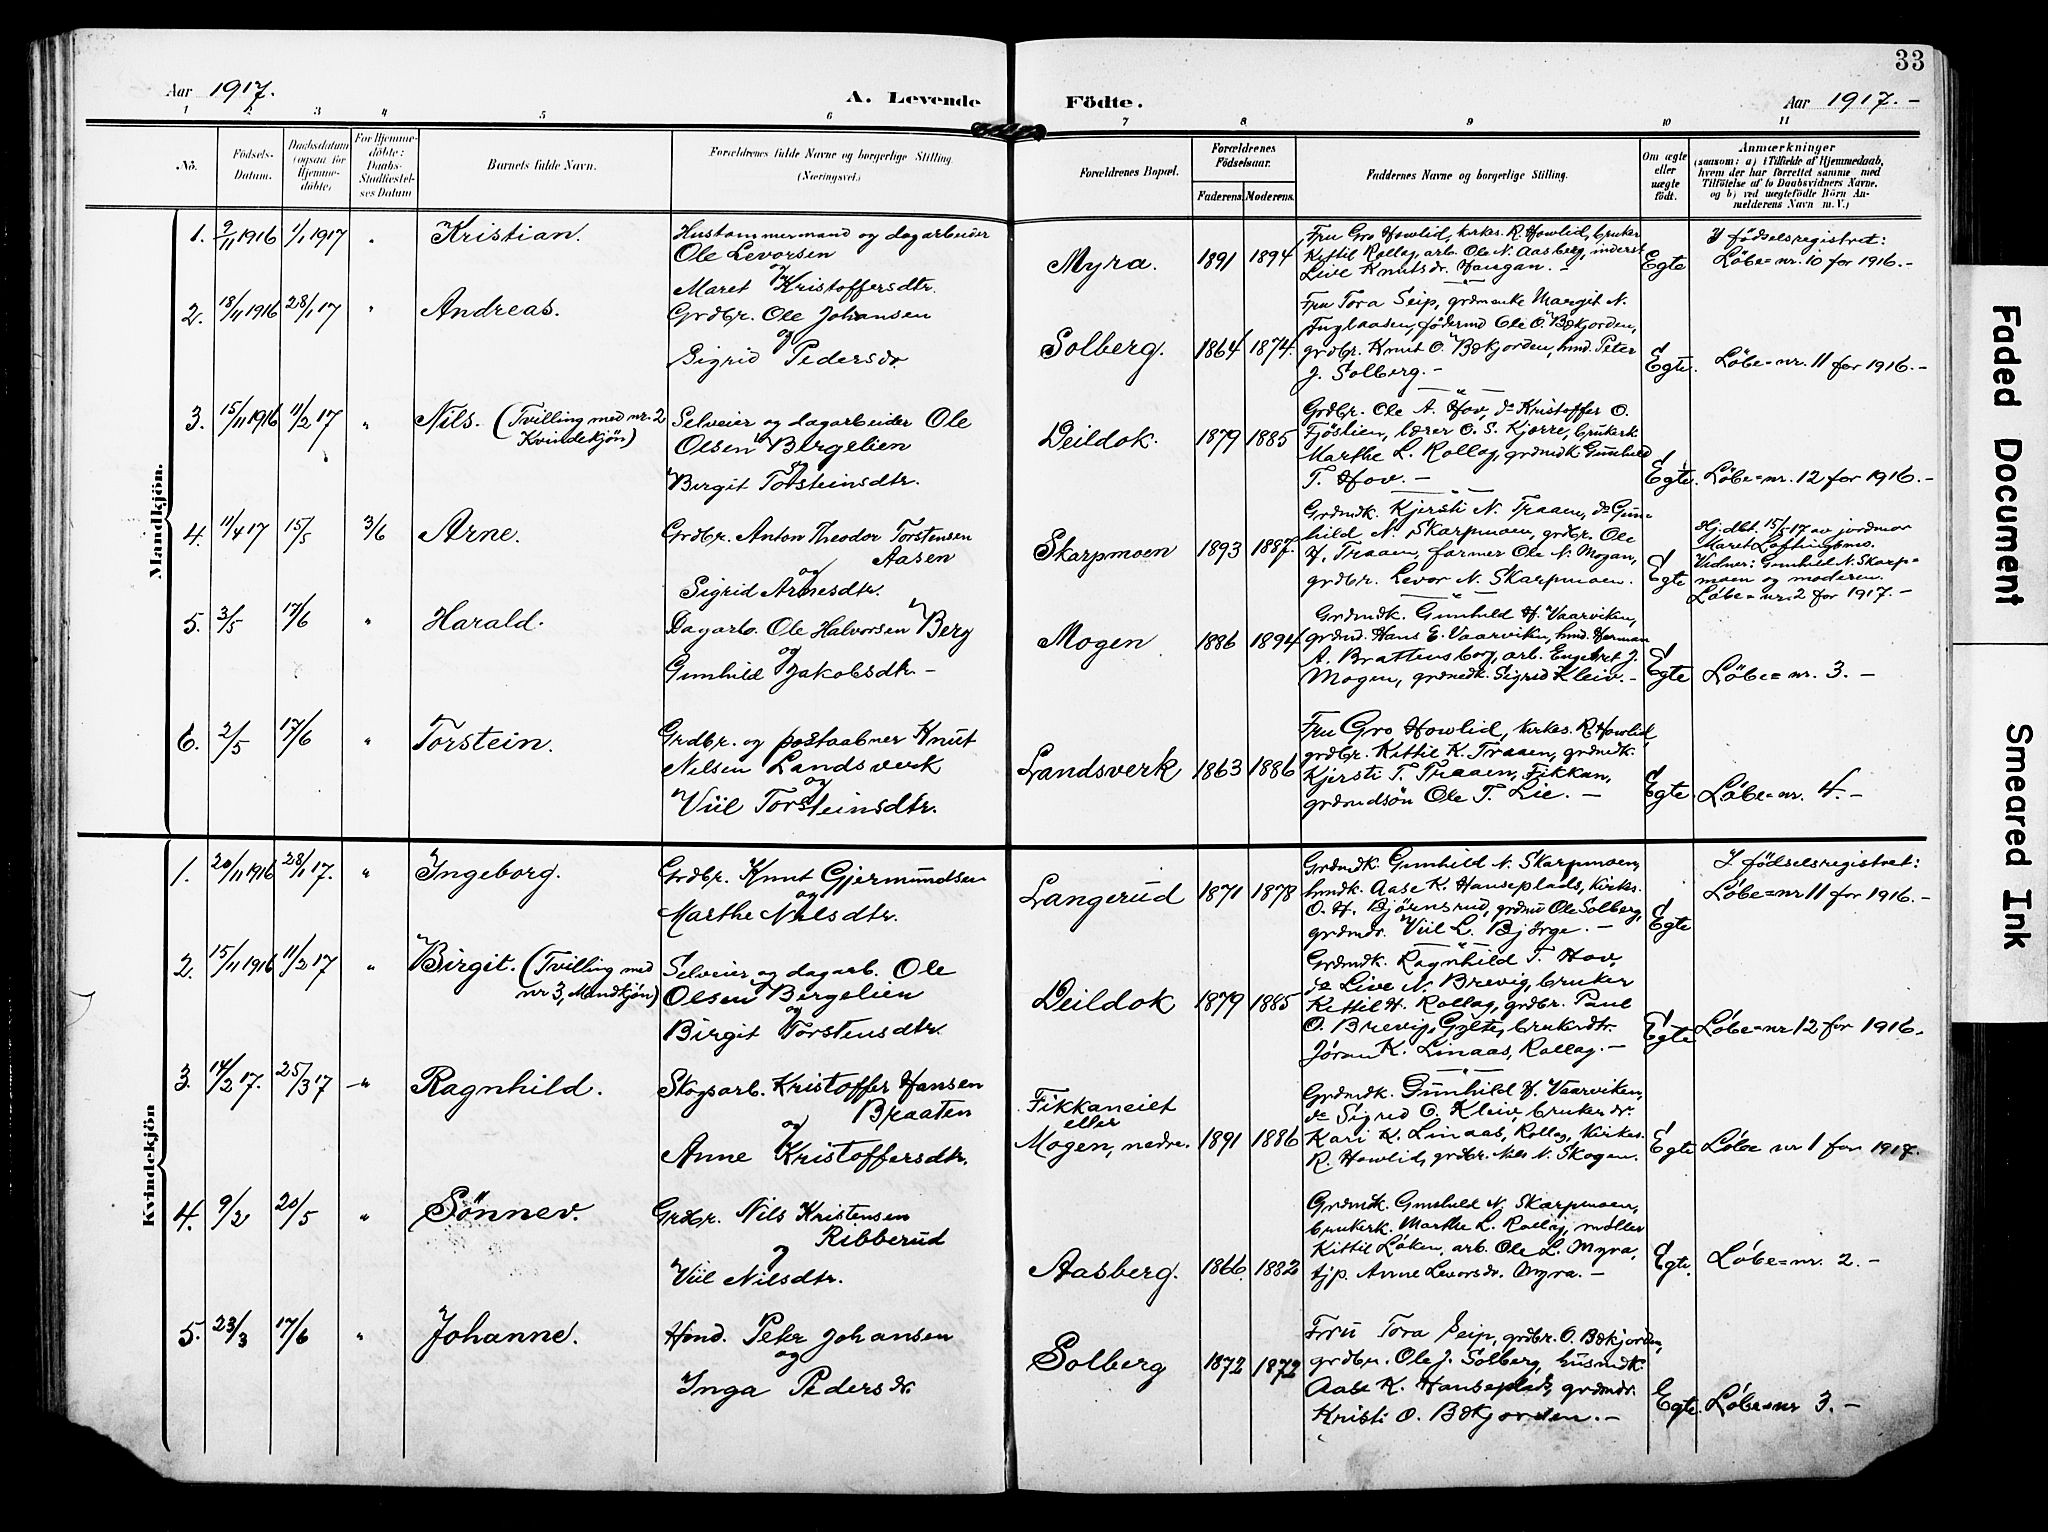 33
Aar 1917.
A. Levende
Födte.
Aar 1917.-
1 2 3 4 5 6 7 8 9 10 11
No.
Födsels-
Datum.
Daabsdatum
(ogsaa for
Hjemme-
döbte)
For Hjemme-
döbte:
Daabs-
Stadfæstel-
ses Datum
Barnets fulde Navn.
Forældrenes fulde Navne og borgerlige Stilling.
(Næringsvei.)
Forældrenes Bopæl.
Forældrenes
Födselsaar.
Faderens. Moderens.
Faddernes Navne og borgerlige Stilling.
Om ægte
eller
uægte
födt.
Anmærkninger
(saasom: a) i Tilfælde af Hjemmedaab,
hvem der har forrettet samme med
Tilföielse af to Daabsvidners Navne,
og b) ved uægtefödte Börn An-
melderens Navn m. V.)
Mandkjön.
1. 9/11 1916 1/1 1917 " Kristian.
Hustømmermand og dagarbeider
Ole Levorsen
og
Maret Kristoffersdtr.
Myra. 1891 1894
Fru Gro Howlid, kirkes. R. Howlid, bruker
Kittil Rollag, arb. Ole N. Aasberg, inderst
Live Knutsdr. Haugan. -
Egte
I födselsregistret:
Löbe=nr. 10 for 1916.-
2. 18/11 1916 28/1 17 " Andreas.
Grdbr. Ole Johansen
og
Sigrid Pedersdr.
Solberg. 1864 1874.
Fru Tora Seip, grdmenke Margit N.
Fuglaasen, födermd Ole O. Bækjorden,
grdbr. Knut O. Bækjorden, hmd. Peter
J. Solberg. -
Egte.
Löbe=nr. 11 for 1916.-
3. 15/11 1916 11/2 17 " Nils. (Tvilling med nr. 2
Kvindekjön)
Selveier og dagarbeider Ole
Olsen Bergelien
og
Birgit Torsteinsdtr.
Deildok. 1879 1885
Grdbr. Ole A. Hov, do Kristoffer O.
Fjöslien, lærer O. S. Kjerre, brukerk.
Marthe L. Rollag, grdmdk. Gunhild
T. Hov. -
Egte.
Löbe=nr. 12 for 1916.-
4. 11/4 17 15/5 3/6 Arne.
Grdbr. Anton Theodor Torstensen
Aasen
og
Sigrid Arnesdtr.
Skarpmoen 1893 1887.
Grdmdk. Kjersti N. Traaen, do Gun-
hild N. Skarpmoen, grdbr. Ole
H. Traaen, farmer Ole N. Mogan,
grdbr. Levor N. Skarpmoen.
Egte
Hj.dbt. 15/5 17 av jordmor
Maret
Vidner: Gunhild N. Skarp=
moen og moderen.
Löbe=nr. 2 for 1917.-
5. 3/5 17/6 " Harald.
Dagarb. Ole Halvorsen Berg
og
Gunhild Jakobsdtr.-
Mogen 1886 1894
Grdmdk. Gunhild H. Vaarviken,
grdmd. Hans E. Vaarviken, hmd. Herman
A. Brattensborg, arb. Engebret J.
Mogen, grdmdk. Sigrid Kleiv.-
Egte
Löbe=nr. 3.-
6. 2/5 17/6 " Torstein.
Grdbr. og postaabner Knut
Nilsen Landsverk
og
Viil Torsteinsdtr.
Landsverk 1863 1886
Fru Gro Howlid, kirkes. R. Howlid,
grdbr. Kittil K. Traaen, grdmdk.
Kjersti T. Traaen, Fikkan,
grdmdsön Ole T. Lie. -
Egte
Löbe=nr. 4.-
Kvindekjön
1. 20/11 1916 28/1 17. " Ingeborg.
Grdbr. Knut Gjermundsen
og
Marthe Nilsdtr.
Langerud 1871 1878
Grdmdk. Gunhild N. Skarpmoen,
hmdk. Aase K. Hanseplads, kirkes.
O. H. Bjørnsrud, grdmd Ole Solberg,
grdmdr. Viil L. Bjørge. -
Egte
I födselsregistret:
Löbe=nr 11 for 1916.-
2. 15/11 1916 11/2 17 " Birgit. (Tvilling med
nr 3, Mandkjön)
Selveier og dagarb. Ole
Olsen Bergelien
og
Birgit Torstensdtr.
Deildok 1879 1885
Grdmdk. Ragnhild T. Hov,
do Live N. Brevig, bruker
Kittil H. Rollag, grdbr. Paul
O. Brevig, brukerdtr.
Jøran K. Linaas, Rollag. -
Egte
Löbe=nr 12 for 1916.
3. 14/2 17. 25/3 17 -" Ragnhild.
Skogsarb. Kristoffer Hansen
Braaten
og
Anne Kristoffersdtr.
Fikkaneiet
eller
Mogen, nedre. 1891 1886
Grdmdk. Gunhild H. Vaarviken,
do Sigrid O. Kleiv, brukerdr.
Kari K. Linaas, Rollag, kirkes.
R. Howlid, grdbr. Nils N. Skogen.
Egte
Löbe nr 1 for 1917.
4. 9/2 20/5 " Sönnev.
Grdbr. Nils Kristensen
Ribberud
og
Viil Nilsdtr.
Aasberg. 1866. 1882
Grdmdk. Gunhild N. Skarpmoen,
brukerk. Marthe L. Rollag, møller
Kittil Løken, arb. Ole L. Myra,
tjp. Anne Levorsdr. Myra. -
Egte.
Löbe=nr. 2.-
5. 23/3 17/6 " Johanne.
Hmd. Peter Johansen
og
Inga Pedersdr.
Solberg 1872 1872
Fru Tora Seip, grdbr. O. Bækjorden,
grdbr. Ole J. Solberg, husmdk.
Aase K. Hanseplads, grdmdr.
Kristi O. Bækjorden. -
Egte.
Löbe=nr 3.-
Faded Document
Smeared Ink